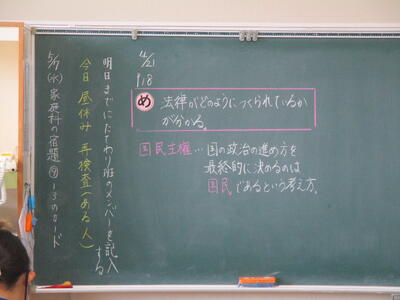 4/21
P18
め 法律がどのようにつくられているか
が分かる。
国民主権…国の政治の進め方を
最終的に決めるのは
国民であるという考え方。
明日までにたてわり班のメンバーを記入
する
今日 昼休み 再検査(ある人)
5/7(水)家庭科の宿題⑨1-3のカード